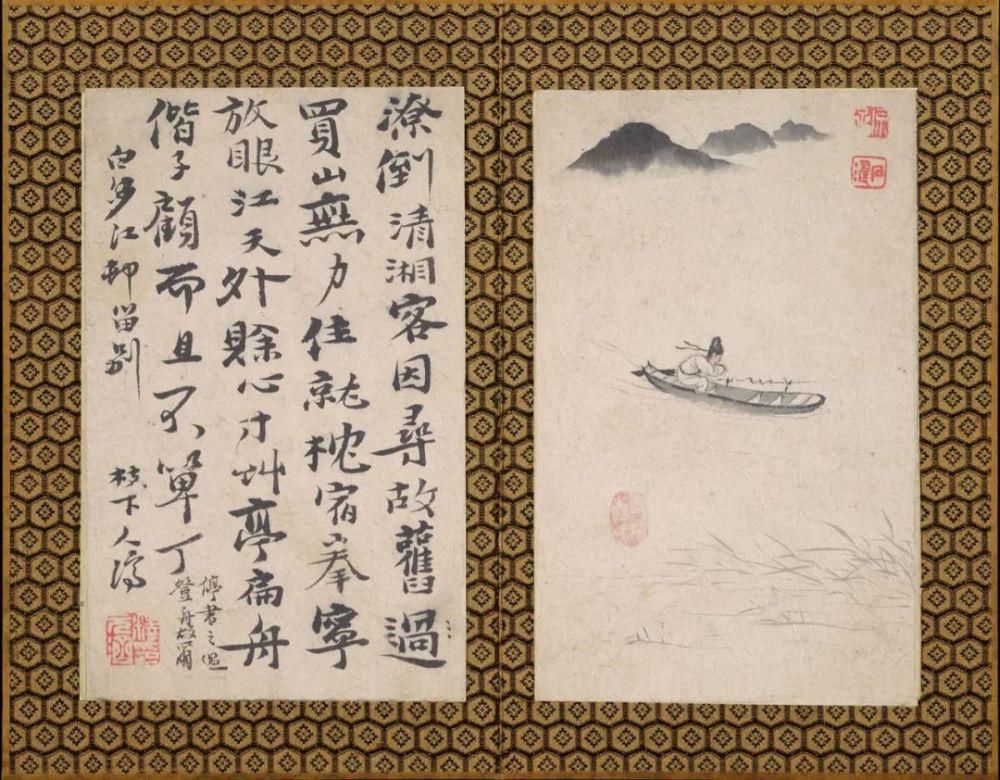 潦倒清湘客因尋故舊過
買山無力住就枕宿峯寧
放眼江天外賒心寸艸亭扁舟
偕子顧而且不單丁
書之
登舟
白沙江邨留別
枝下人濟